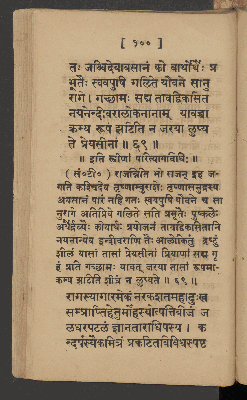 [ १०० ]
तः जश्चिदेयावसानं को वार्थोर्थैः प्र
भूतैः स्ववपुषि गलिते यौवने सानु
रागे। गच्छामः सद्म तावद्विकसित
नयनेन्दीवरालोकनानाम् यावच्चा
क्रम्य रूपं झटिति न जरया लुप्य
ते प्रेयसीनां ॥ ६९ ॥
॥ इति स्त्रीणां परित्यागविधिः ॥
( सं०टी० ) राजन्निति भो राजन् इह ज
गति कश्चिदेव तृष्णाम्बुराशेः तृष्णासमुद्रस्य
अवसानं पारं नहि गतः स्ववपुषि यौवने च सा
नुरागे अतिप्रिये गलिते सति प्रभूतैः पुष्कलैः
अर्थैर्द्रव्यैः कोवार्थः प्रयोजनं तावद्विकसितानि
नयनान्येव इन्दीवराणि तैः आलोकितुं द्रष्टुं
शीलं यासां तासां प्रेयसीनां प्रियाणां सद्म गृ
हं प्रति गच्छामः यावत् जरया तासां रूपमा-
क्रम्य झटिति शीघ्रं न लुप्यते ॥ ६९ ॥
रागस्यागारमेकं नरकशतमहादुःख
सम्प्राप्तिहेतुर्मोहस्योत्पत्तिबीजं ज
लधरपटलं ज्ञानताराधिपस्य । क
न्दर्पस्यैकमित्रं प्रकटितविविधस्पष्ठ